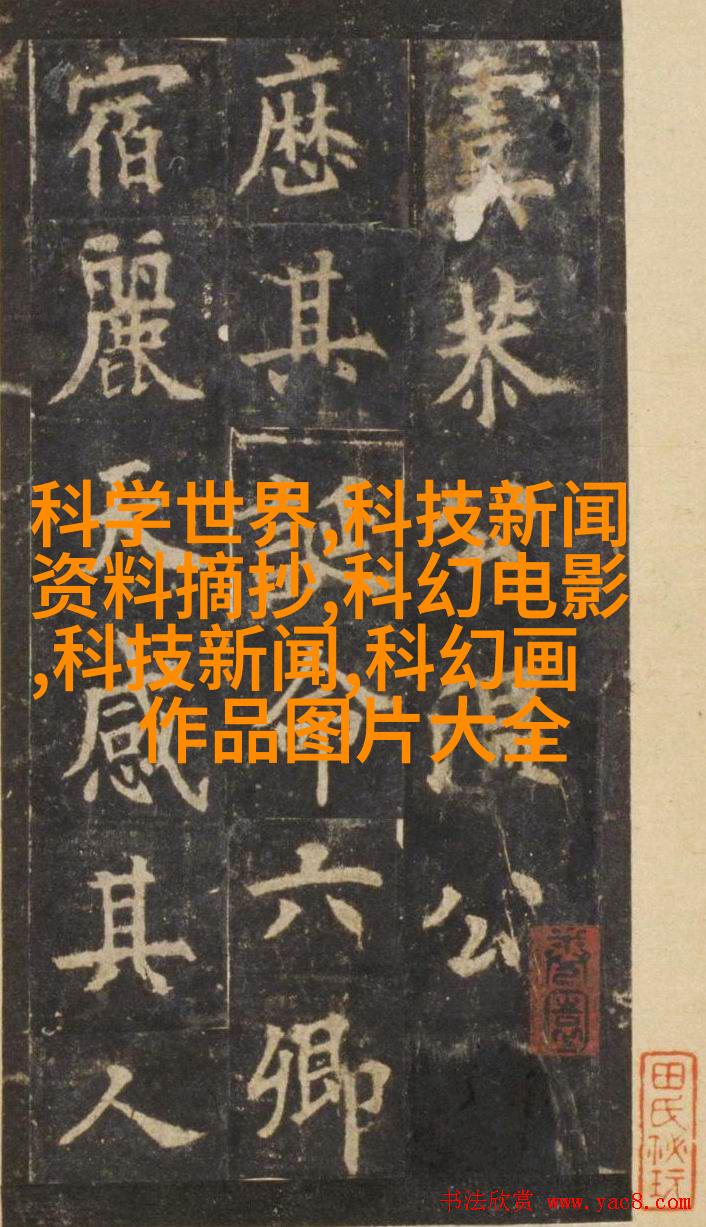 恭公
其命六卿
宿麗天感其人
科学世界,科技新闻
资料摘抄,科幻电影
,科技新闻,科幻画
作品图片大全
田氏秘玩
书法欣赏 www.yac8.com